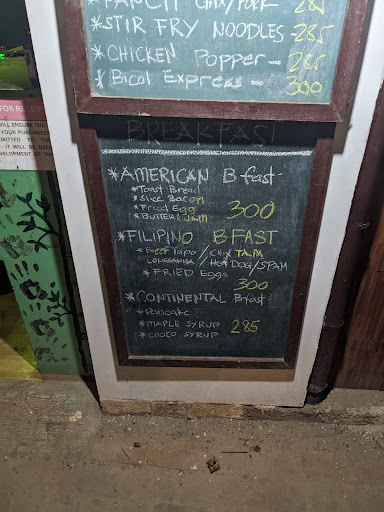 PANCIT CHIX/PORK 285
*STIR FRY NOODLES-285
*CHICKEN Popper - 285
*Bicol Express - 300
BREAKFAST
*AMERICAN B fast-
*Toast Bread
*Slice Bacon
*Fried Egg
*BUTTER & Jam 300
*FILIPINO BFAST
*BEEF Tapa / CHIX TAPA
LONGANISA / HOTDOG/SPAM
*FRIED Eggs
300
*CONTINENTAL Bfast
*Pancake
*MAPLE SYRUP 285
*CHOCO SYRUP
FOR RECEIP
WILL ENSURE THA
YOUR PURCHASE
MITTED TO TH
IT WILL BE USE
EVELOPMENT OF TH